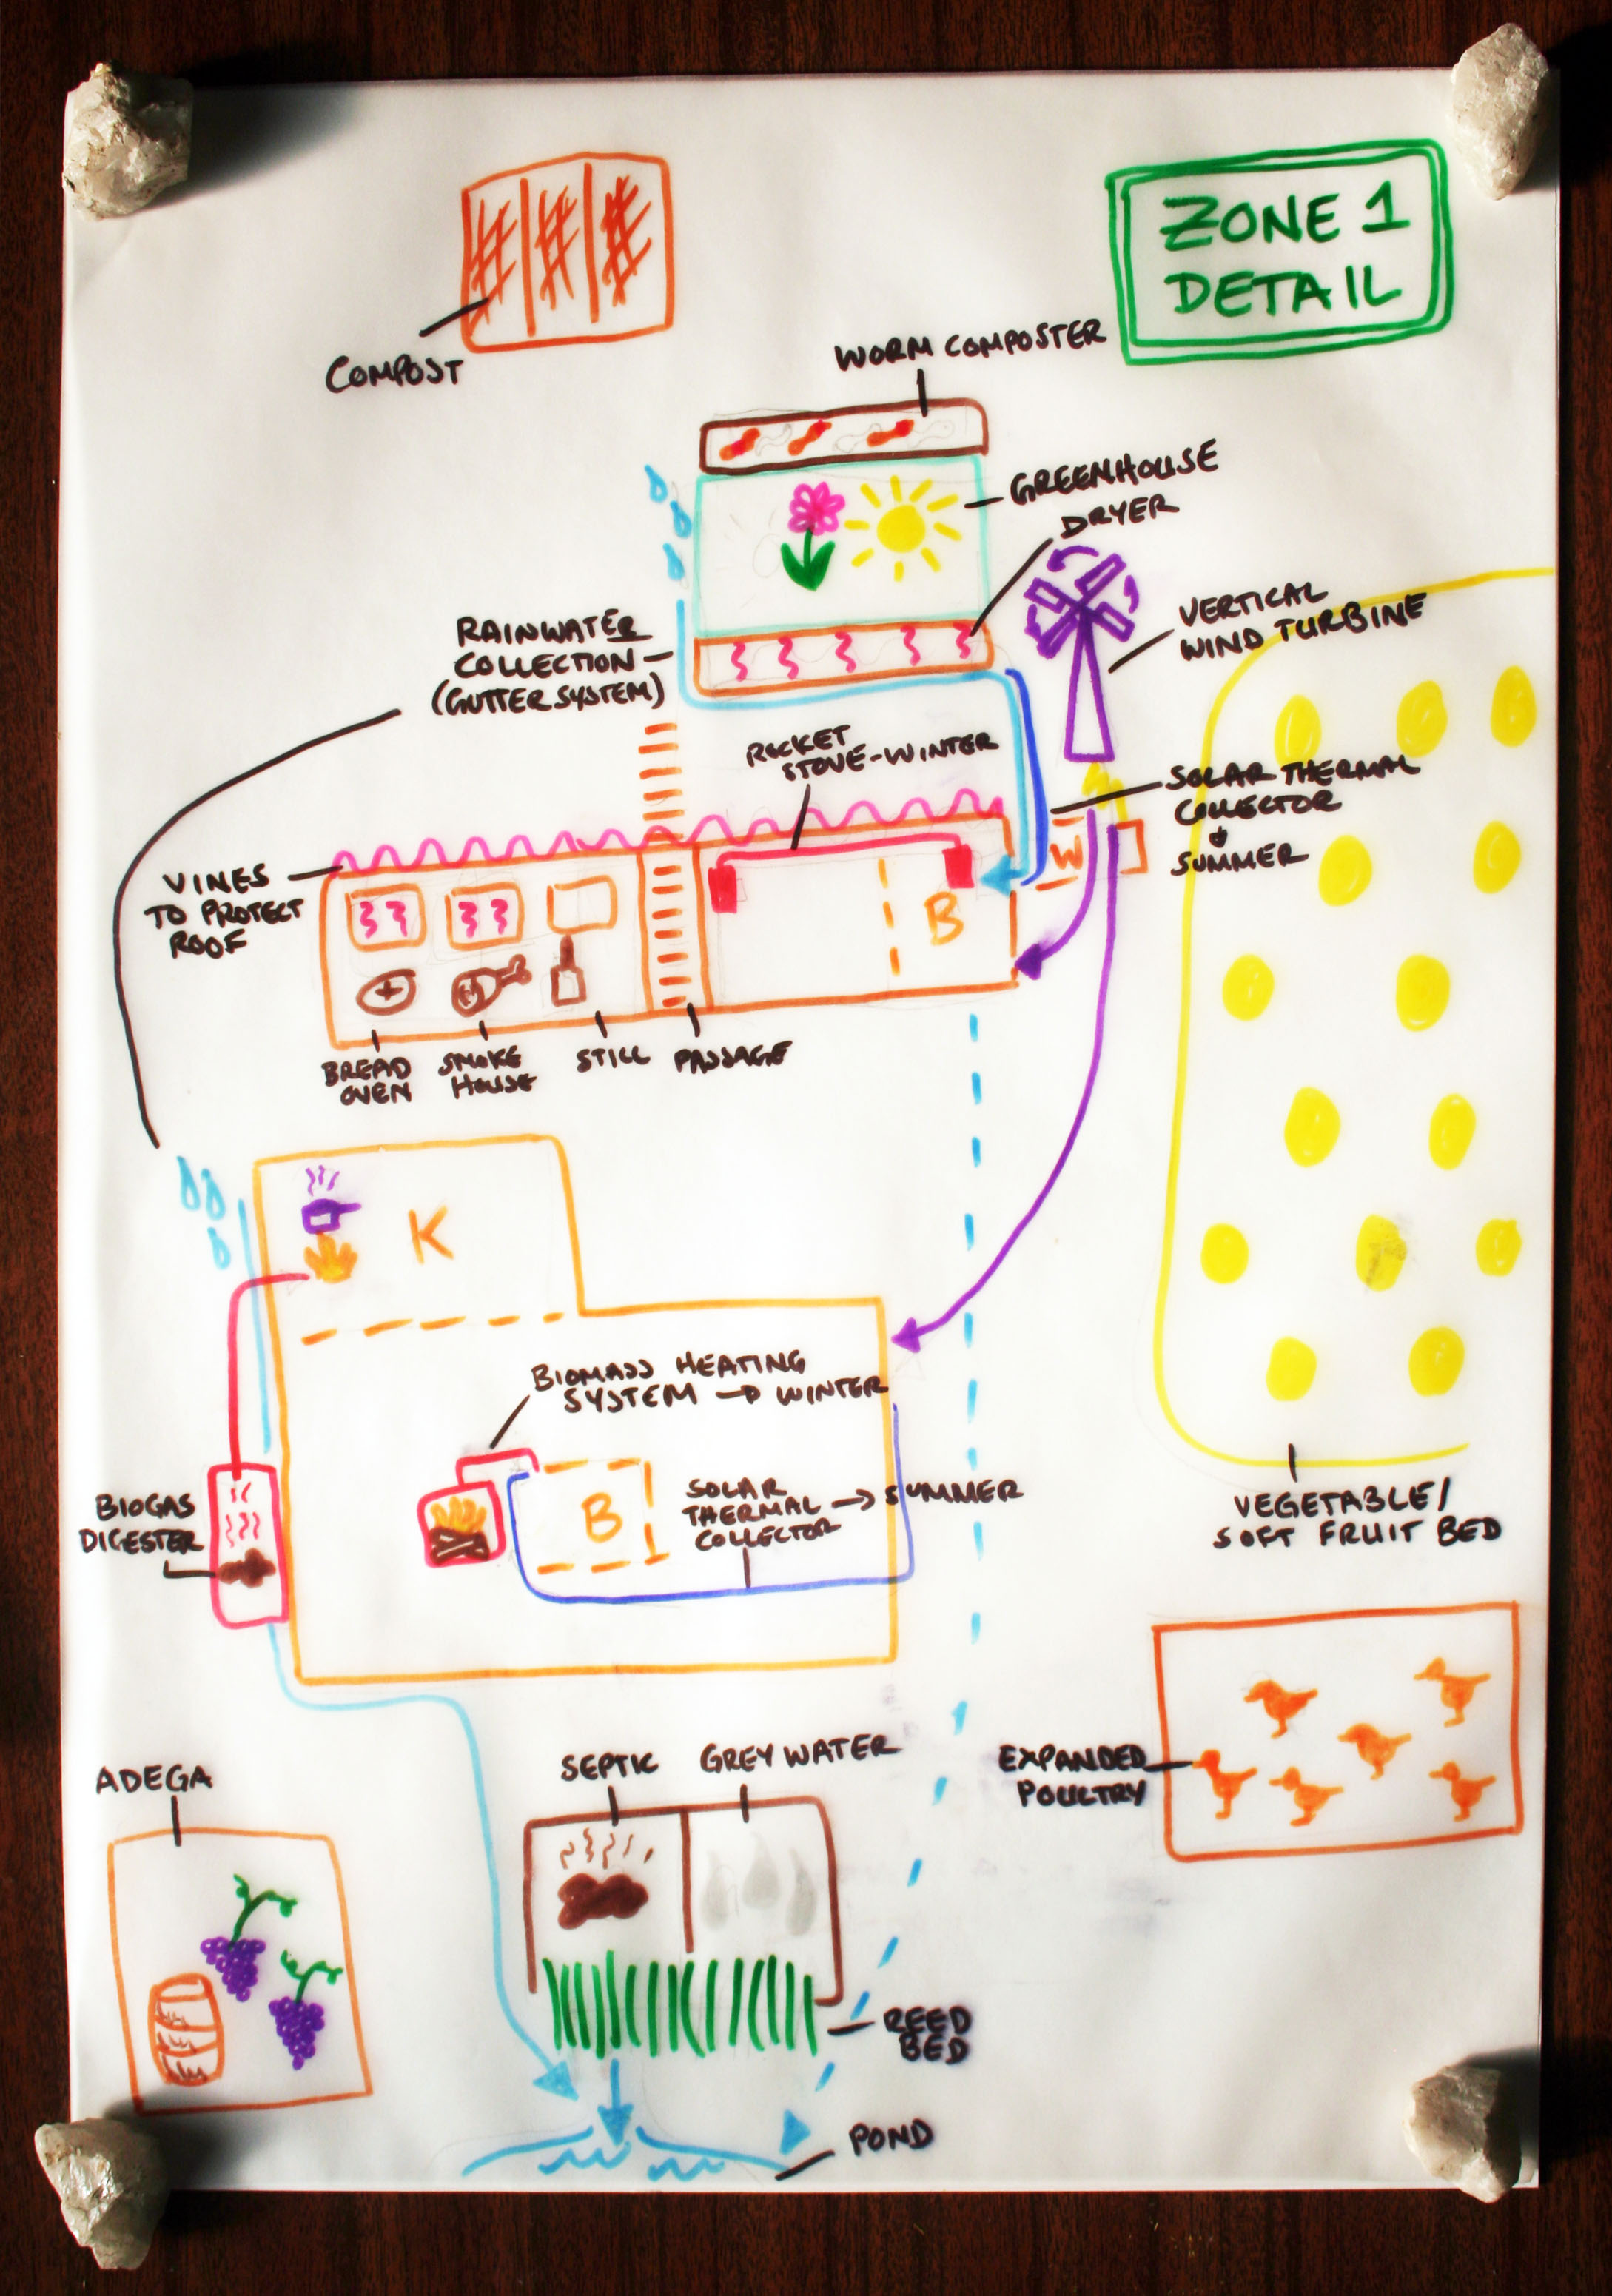 ZONE 1
DETAIL
COMPOST
WORM COMPOSTER
GREENHOUSE
DRYER
VERTICAL
WIND TURBINE
RAINWATER
COLLECTION
(GUTTER SYSTEM)
ROCKET
STOVE-WINTER
SOLAR THERMAL
COLLECTOR
&
SUMMER
W
VINES
TO PROTECT
ROOF
B
BREAD
OVEN
SMOKE
HOUSE
STILL
PASSAGE
K
BIOMASS HEATING
SYSTEM → WINTER
BIOGAS
DIGESTER
B
SOLAR
THERMAL → SUMMER
COLLECTOR
VEGETABLE/
SOFT FRUIT BED
EXPANDED
POULTRY
ADEGA
SEPTIC
GREY WATER
REED
BED
POND